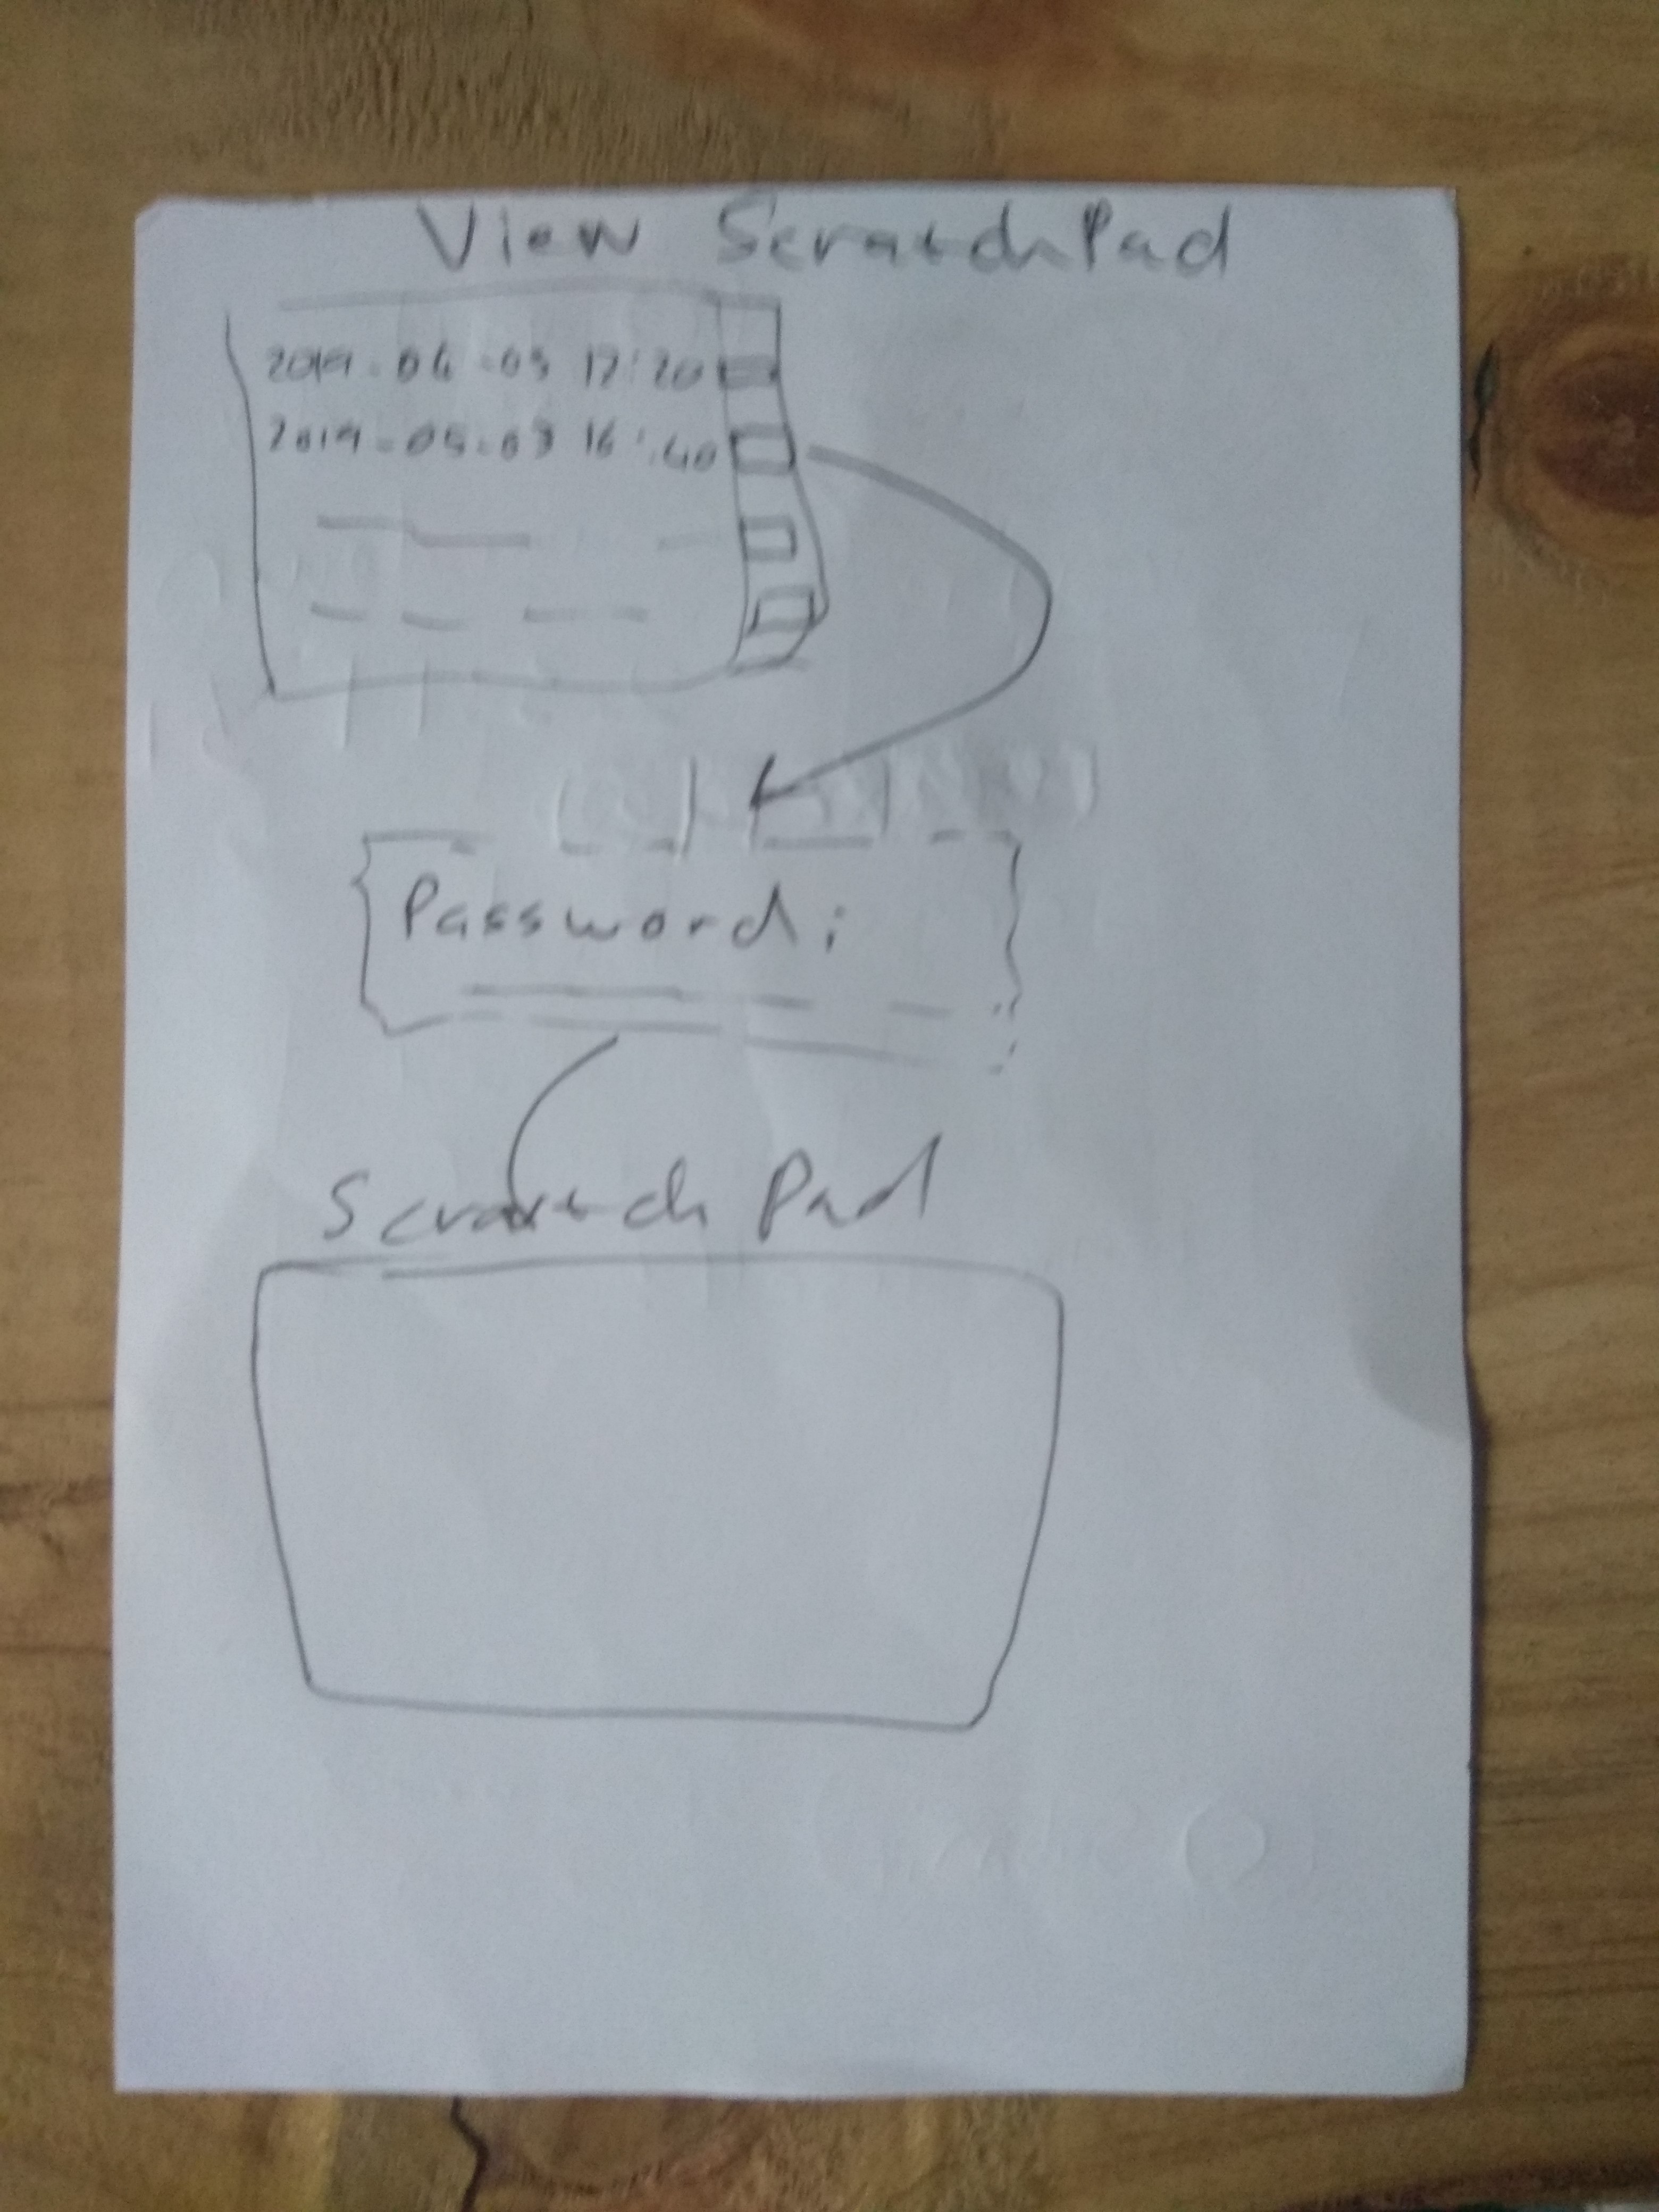 View ScratchPad
2019-04-03 17:20
2019-05-03 16:40
Password:
Scratch Pad